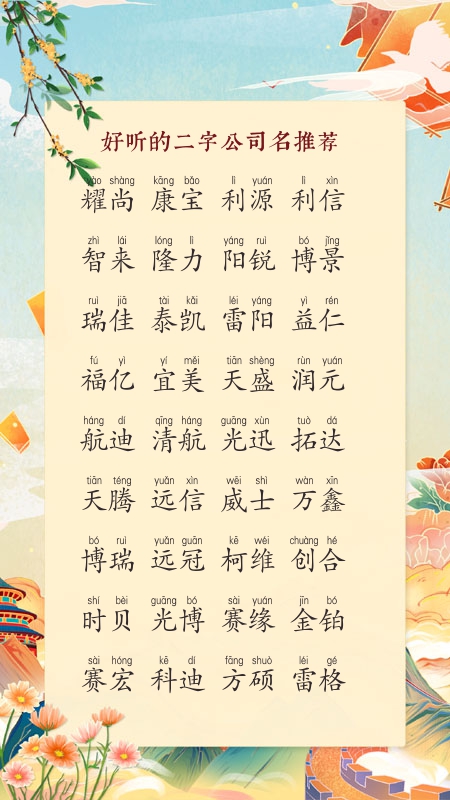 好听的二字公司名推荐
yào shàng kāng bǎo lì yuán lì xìn
耀尚 康宝 利源 利信
zhì lái lóng lì yáng ruì bó jǐng
智来 隆力 阳锐 博景
ruì jiā tài kǎi léi yáng yì rén
瑞佳 泰凯 雷阳 益仁
fú yì yí měi tiān shèng rùn yuán
福亿 宜美 天盛 润元
háng dí qīng háng guāng xùn tuò dá
航迪 清航 光迅 拓达
tiān téng yuǎn xìn wēi shì wàn xīn
天腾 远信 威士 万鑫
bó ruì yuǎn guān kē wéi chuàng hé
博瑞 远冠 柯维 创合
shí bèi guāng bó sài yuán jīn bó
时贝 光博 赛缘 金铂
sài hóng kē dí fāng shuò léi gé
赛宏 科迪 方硕 雷格